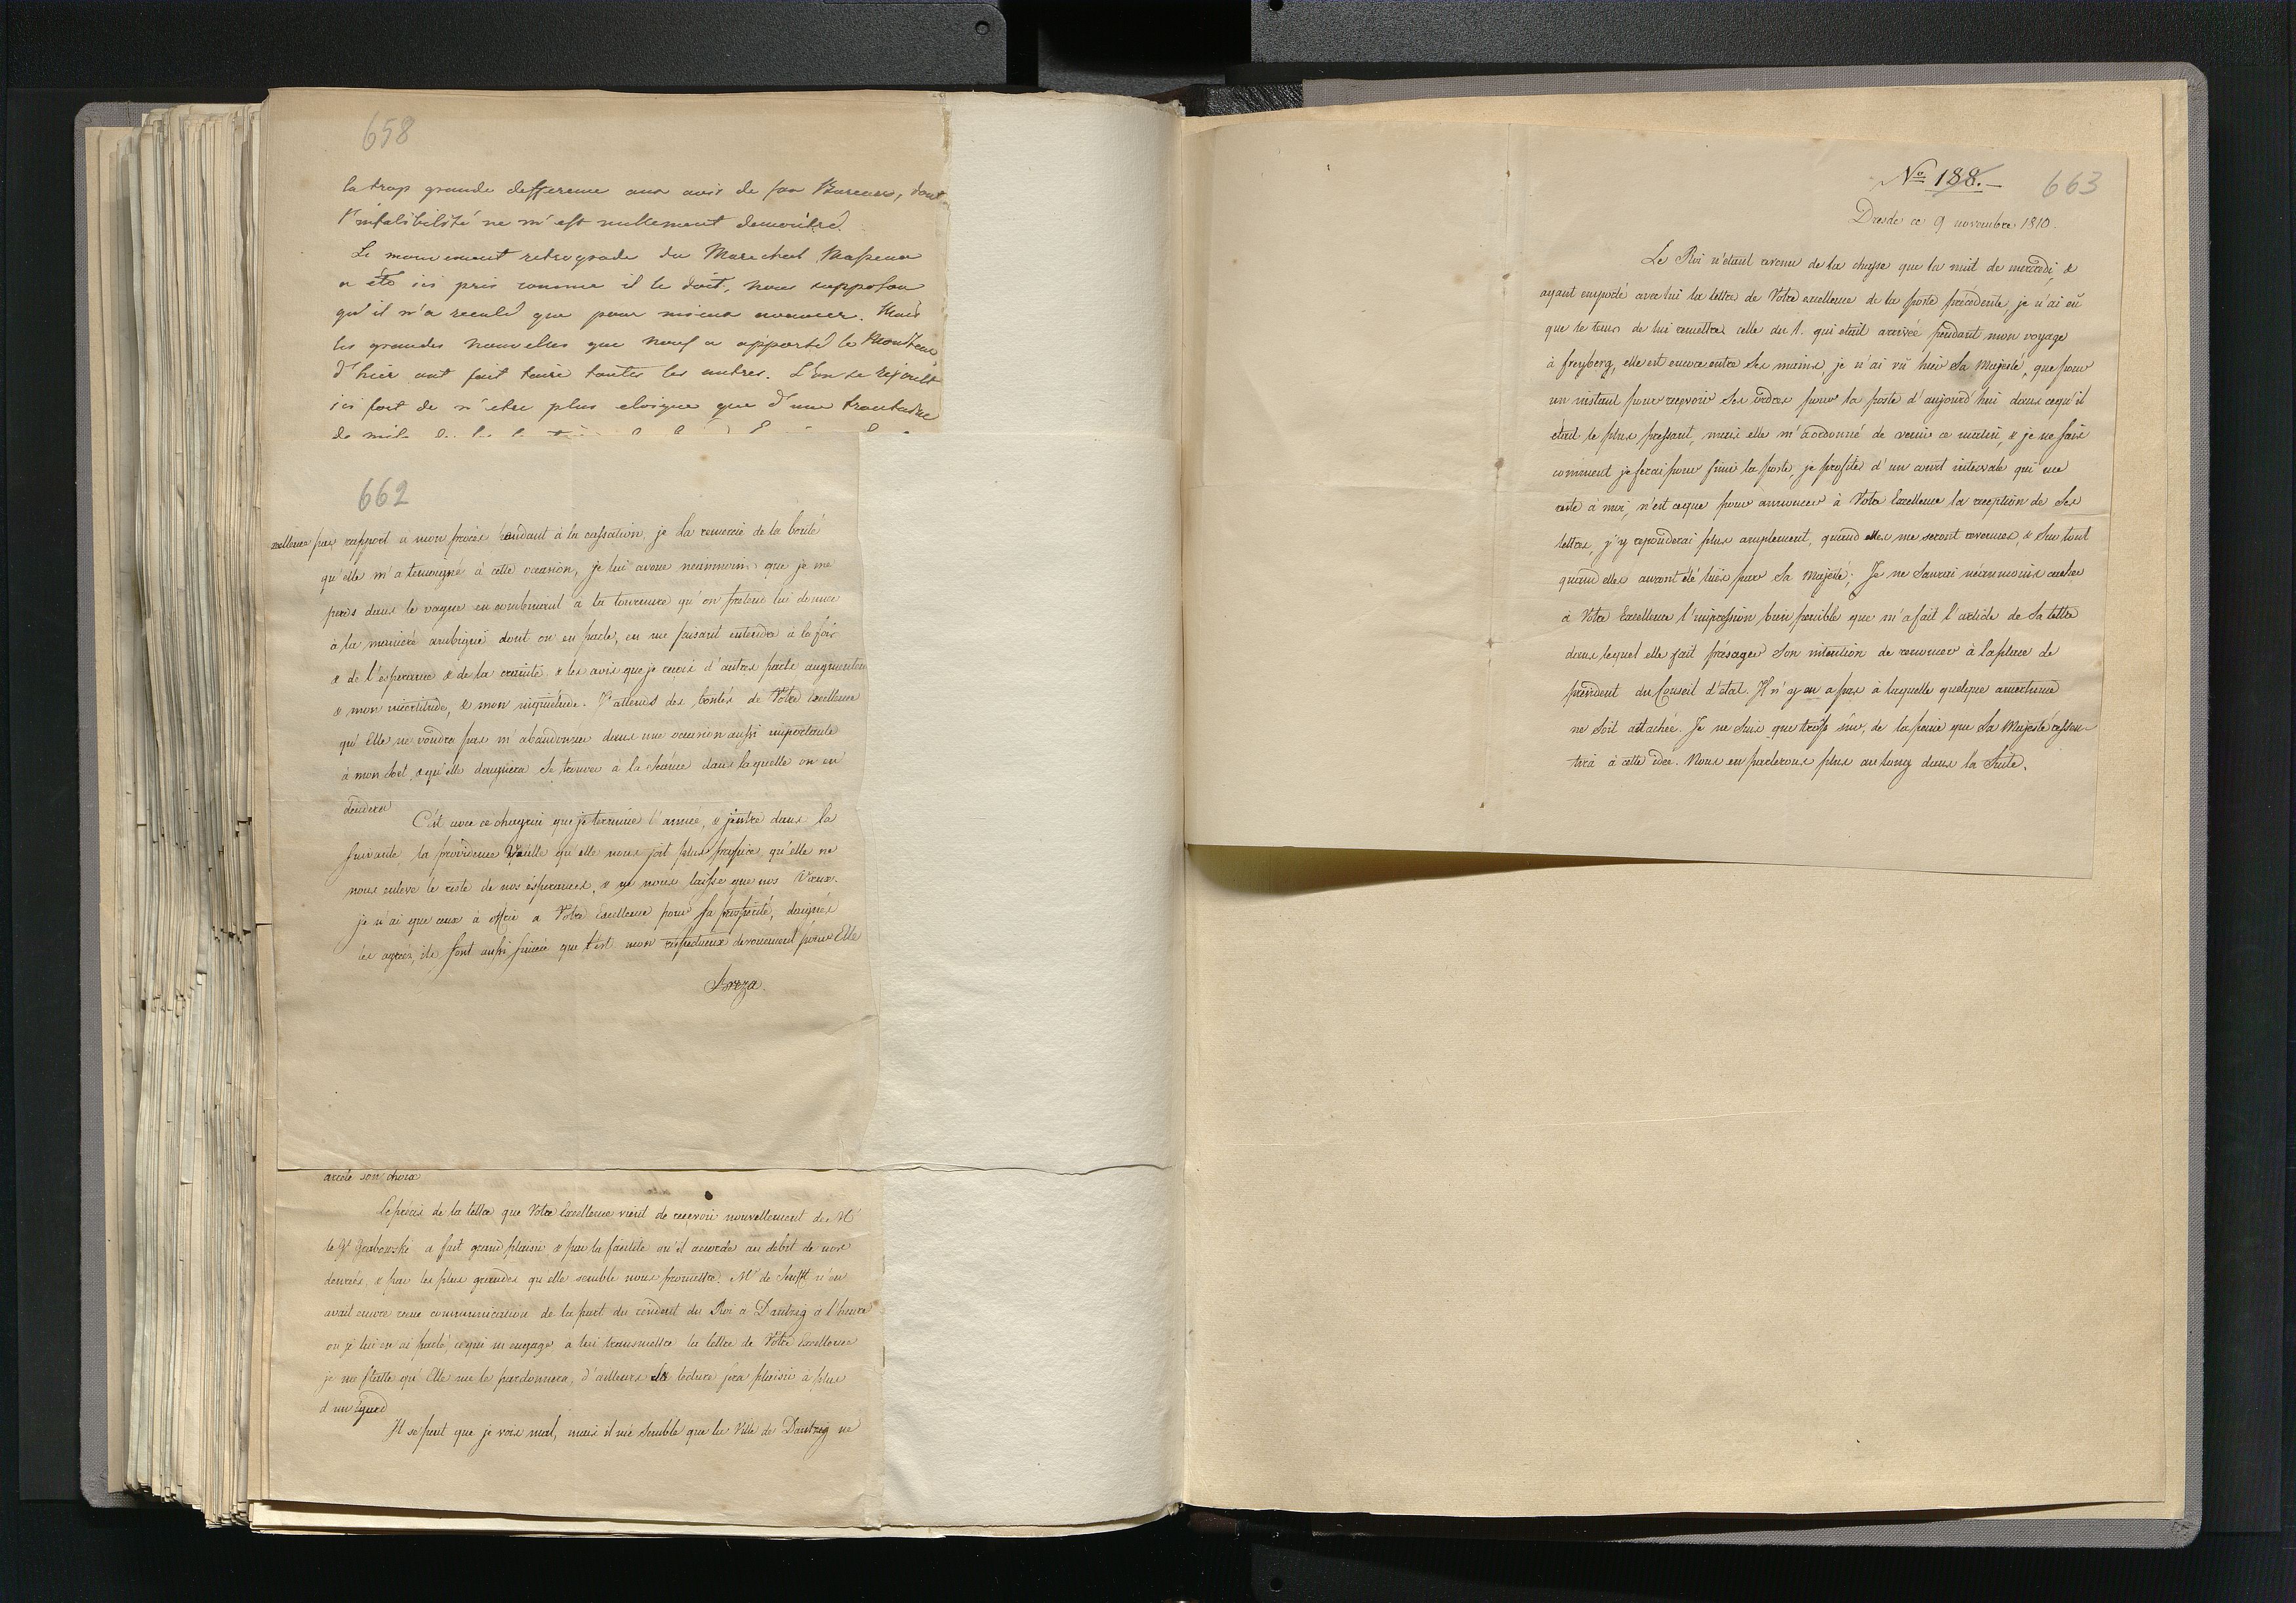 658
la trop grande defference aux avis de son Bureau, dont
l'infalibilité ne m'est nullement demontré.
Le mouvement retrograde du Marechal Massena
a été ici pris comme il le doit, nous supposons
qu'il n'a reculé que pour mieux avancer. Mais
les grandes nouvelles que nous a apporté le Moniteur
d'hier ont fait taire toutes les autres. L'on se rejouit
ici fort de n'etre plus eloigné que d'une trentaine
de mils
662
excellence par rapport a mon procès pendant à la cassation, je la remercie de la bonté
qu'elle m'a temoigné à cette occasion, je lui avoue neanmoins que je me
perds dans le vague en combinant a la tournure qu'on pretend lui donner
à la maniere ambiguë dont on en parle, en me faisant entendre à la fois
& de l'esperance & de la crainte, & les avis que je recois d'autre parts augmentent
& mon incertitude, & mon inquietude. J'attends des bontés de Votre Excellence
qu'Elle ne voudra pas m'abandonner dans une occasion aussi importante
à mon sort, & qu'elle daignera se trouver à la séance dans laquelle on en
decidera
C'est avec ce chagrin que je termine l'année, & j'entre dans la
suivante, la providence Veuille qu'elle nous soit plus propice, qu'elle ne
nous enleve le reste de nos esperances, & ne nous laisse que nos Vœux.
je n'ai que ceux à offrir a Votre Excellence pour sa prosperité, daignés
les agréer, ils sont aussi sincere que l'est mon respectueux devouement pour Elle
Breza
arrete son choix
Le précis de la lettre que Votre Excellence vient de reçevoir nouvellement de Mr
le Gl Grabowski a fait grand plaisir, & par la facilité qu'il accorde au debit de nos
denrées, & par les plus grandes qu'elle semble nous promettre. Mr de Senfft n'en
avait encore reçue communication de la part du resident du Roi a Dantzig à l'heure
ou je lui en ai parlé, ce qui m'engage a lui transmettre la lettre de Votre Excellence
je me flatte qu'Elle me le pardonnera, d'ailleurs sa lecture fera plaisir a plus
d'un Egard
Il se peut que je vois mal, mais il me semble que la Ville de Dantzig ne
No. 188. 663
Dresde ce 9 novembre 1810.
Le Roi n'étant revenu de la chasse que la nuit de mercredi, &
ayant emporté avec lui la lettre de Votre excellence de la poste précédente, je n'ai eû
que le tems de lui remettre celle du 1. qui etait arrivée pendant mon voyage
à freyberg, elle est encore entre Ses mains, je n'ai vû hier Sa Majesté, que pour
un instant pour reçevoir Ses ordres pour la poste d'aujourd'hui dans cequ'il
était le plus pressant, mais elle m'a ordonné de venir ce matin, & je ne sais
comment je ferai pour finir la poste, je profite d'un court intervale qui me
reste à moi, n'est ceque pour annoncer à Votre Excellence la reception de Ses
lettres, j'y repondrai plus amplement, quand elles me seront revenues, & Sur tout
quand elles auront été lües par Sa Majesté; Je ne Saurai néanmoins cacher
à Votre Excellence l'impression bien penible que m'a fait l'article de Sa lettre
dans lequel elle fait présager Son intention de renoncer à la place de
président du Conseil d'état. Il n'y en a pas à laquelle quelque amertume
ne Soit attachée. Je ne Suis que trop sûr, de la peine que Sa Majesté ressen-
tira à cette idée. Nous en parlerons plus au long dans la Suite.